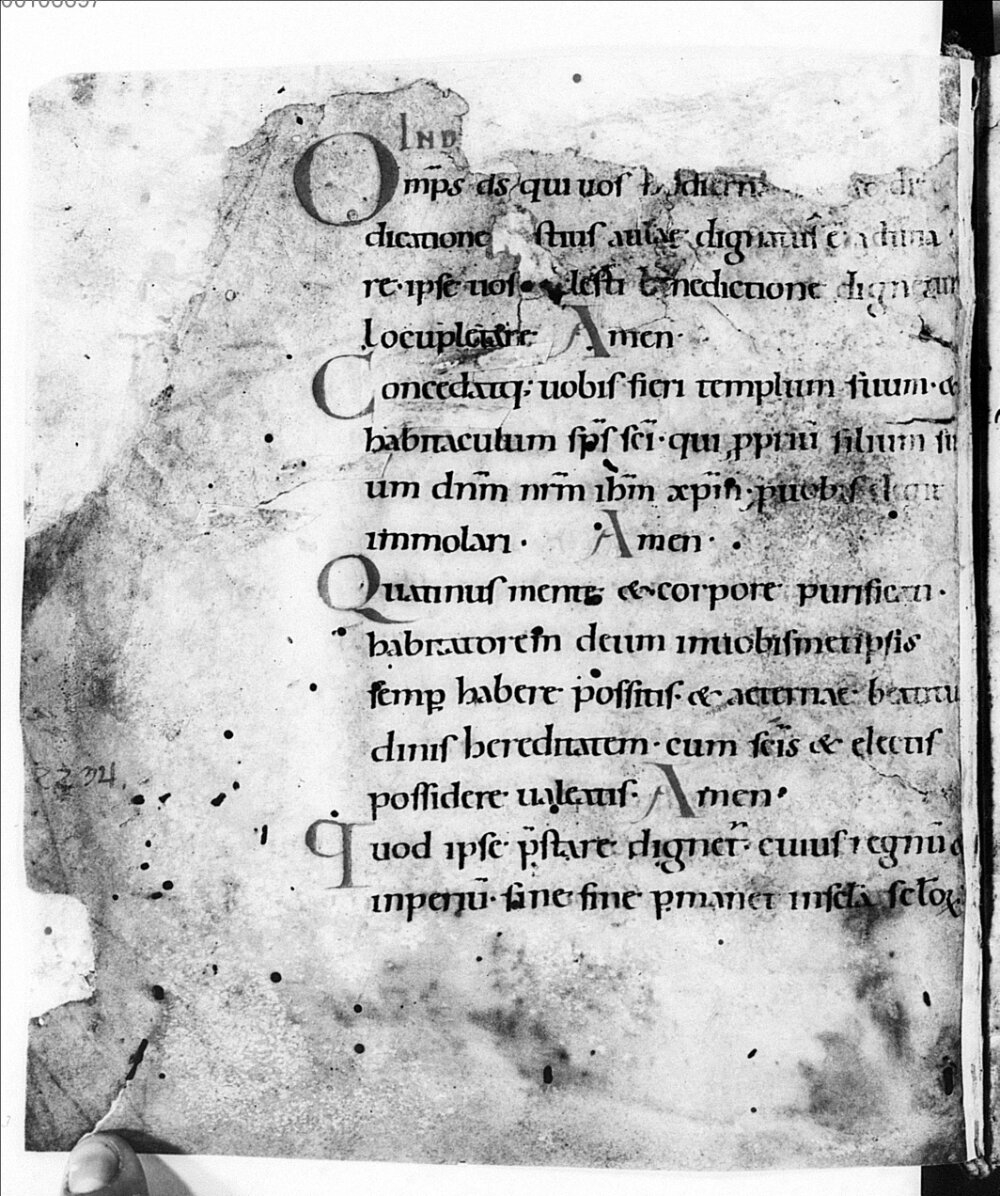 IND
Omp̄s ds qui uos
dicatione aulae dignatus ē
re· ipse uos benedictione
locupletare Amen·
Concedatq; uobis fieri templum suum· &
habitaculum sp̄s sc̄i· qui ꝓpriū filium su
um dn̄m nr̄m ih̄m xp̄m· ꝓ uobis
immolari · Amen ·
Quatinus mente & corpore purificati ·
habitatorem deum in uobismetipsis
semꝑ habere possitis· & aeternae beatitu
dinis hereditatem· cum sc̄is & electis
possidere ualeatis· Amen·
Quod ipse p̄stare dignet̄· cuius regnū &
inperiū· sine fine ꝑmanet in sc̄la sc̄loꝝ·